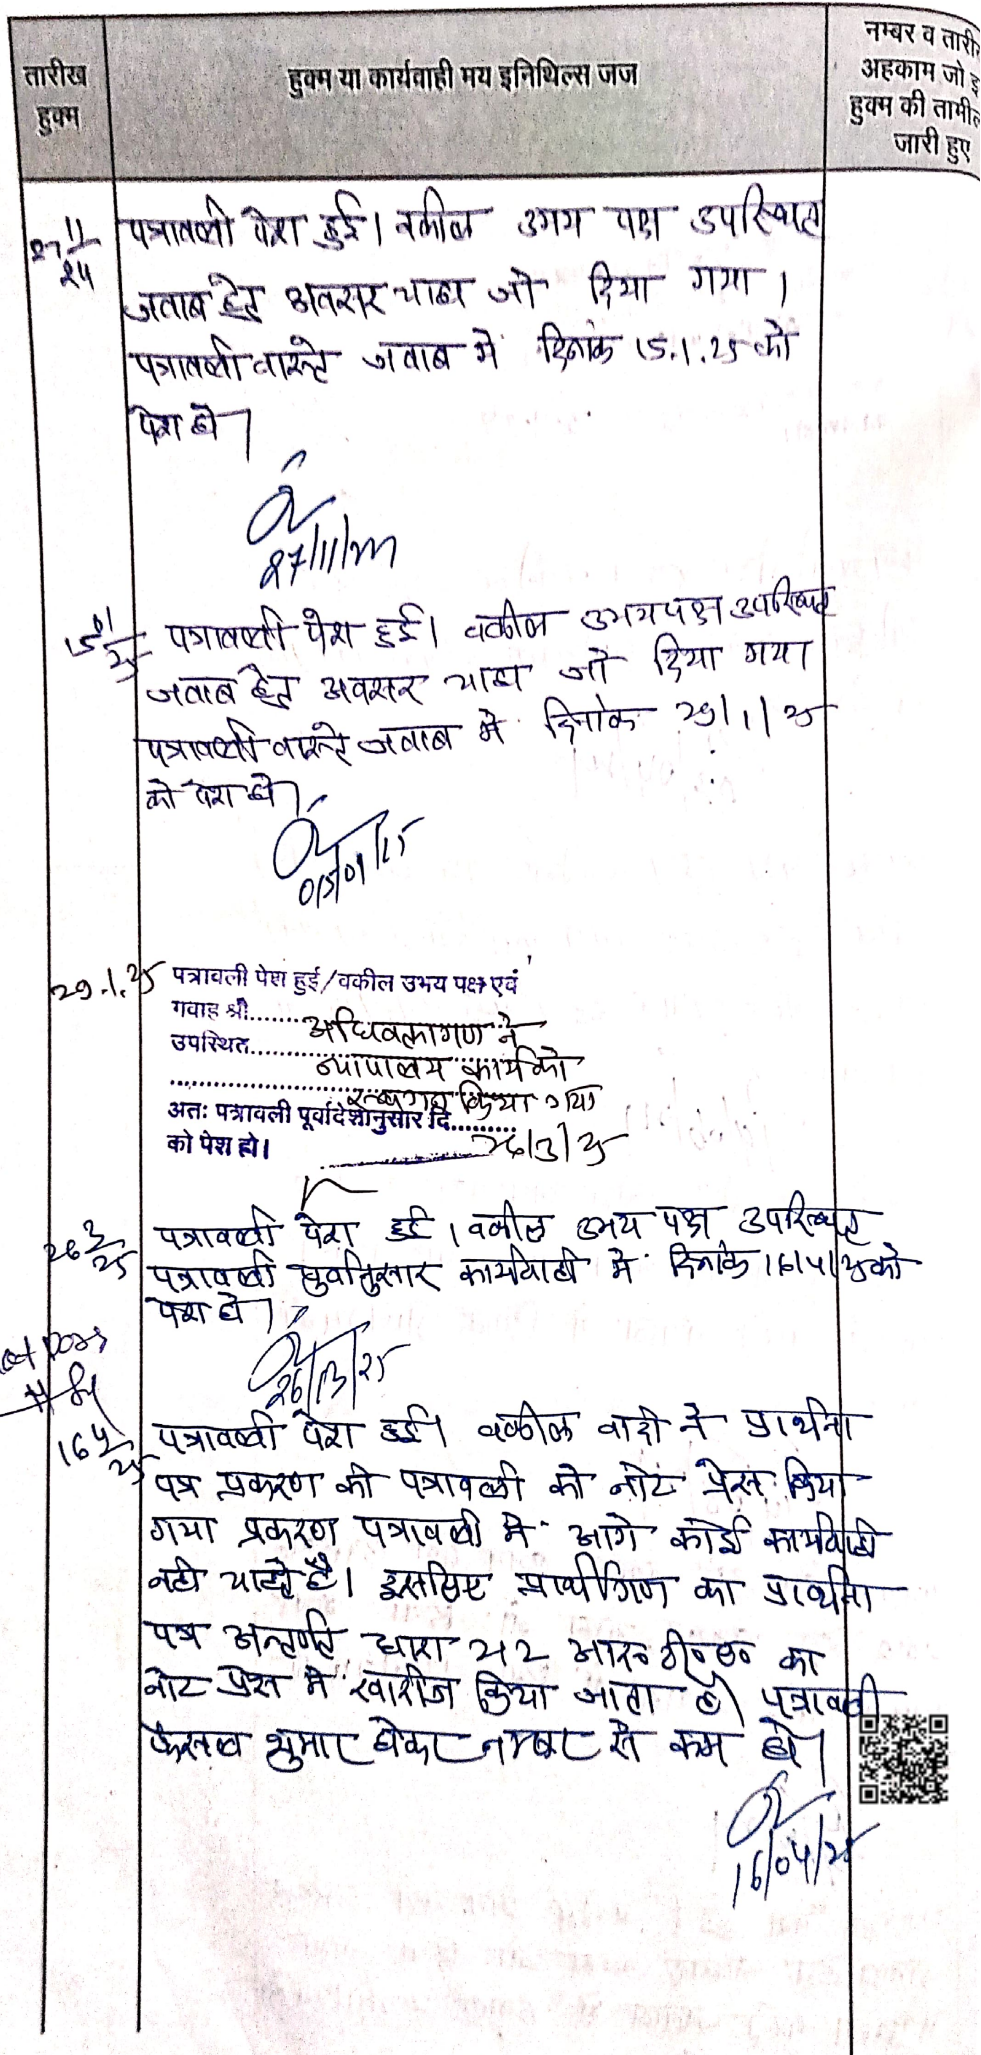 तारीख
हुक्म
हुक्म या कार्यवाही मय इनिशिल्स जज
नम्बर व तारी
अहकाम जो इ
हुक्म की तामील
जारी हुए
27/11/24
पत्रावली पेश हुई। वकील उभय पक्ष उपस्थित
जवाब हेतु अवसर चाहा जो दिया गया।
पत्रावली वास्ते जवाब में दिनांक 15.1.25 को
पेश हो।
27/11/24
15/01/25
पत्रावली पेश हुई। वकील उभयपक्ष उपस्थित
जवाब हेतु अवसर चाहा जो दिया गया।
पत्रावली वास्ते जवाब में दिनांक 29/1/25
को पेश हो।
15/01/25
29.1.25
पत्रावली पेश हुई/वकील उभय पक्ष एवं
गवाह श्री........अधिवक्तागण ने
उपस्थित........न्यायालय कार्य को
........स्थगन किया गया
अतः पत्रावली पूर्वादेशानुसार दि..........
को पेश हो।
26/3/25
26/3/25
पत्रावली पेश हुई। वकील उभय पक्ष उपस्थित
पत्रावली पुर्वानुसार कार्यवाही में दिनांक 16/4/25 को
पेश हो।
26/03/25
16/4/25
पत्रावली पेश हुई। वकील वादी ने प्रार्थना
पत्र प्रकरण की पत्रावली को नोट प्रेस किया
गया प्रकरण पत्रावली में आगे कोई कार्यवाही
नही चाहते है। इसलिए प्रार्थीगण का प्रार्थना
पत्र अन्तर्गत धारा 212 आर०टी०ए० का
नोट प्रेस में खारीज किया जाता है। पत्रावली
फैसल शुमार होकर नम्बर से कम हो।
16/04/25